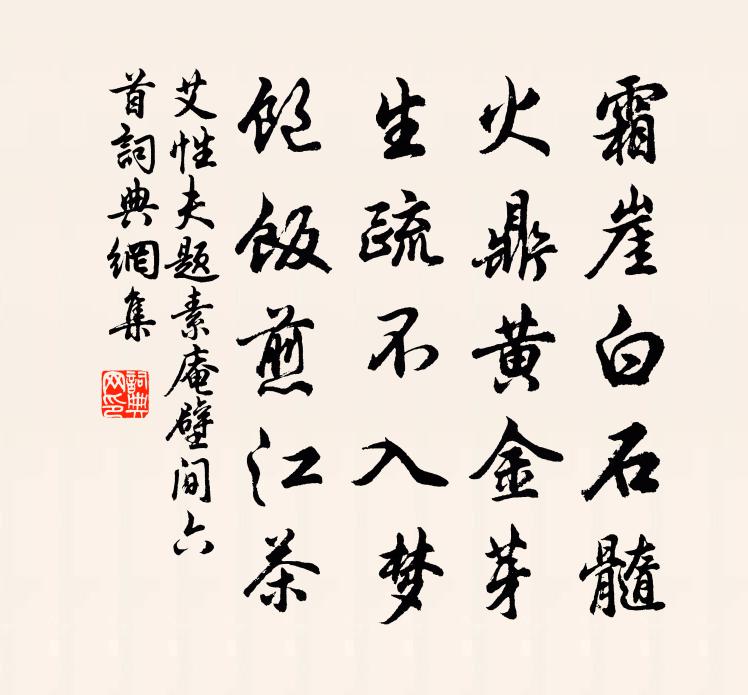 霜崖白石髓
火鼎黄金芽
生疏不入梦
饱饭煎江茶
艾性夫题素庵壁间六
首詞典網集
詞典网印